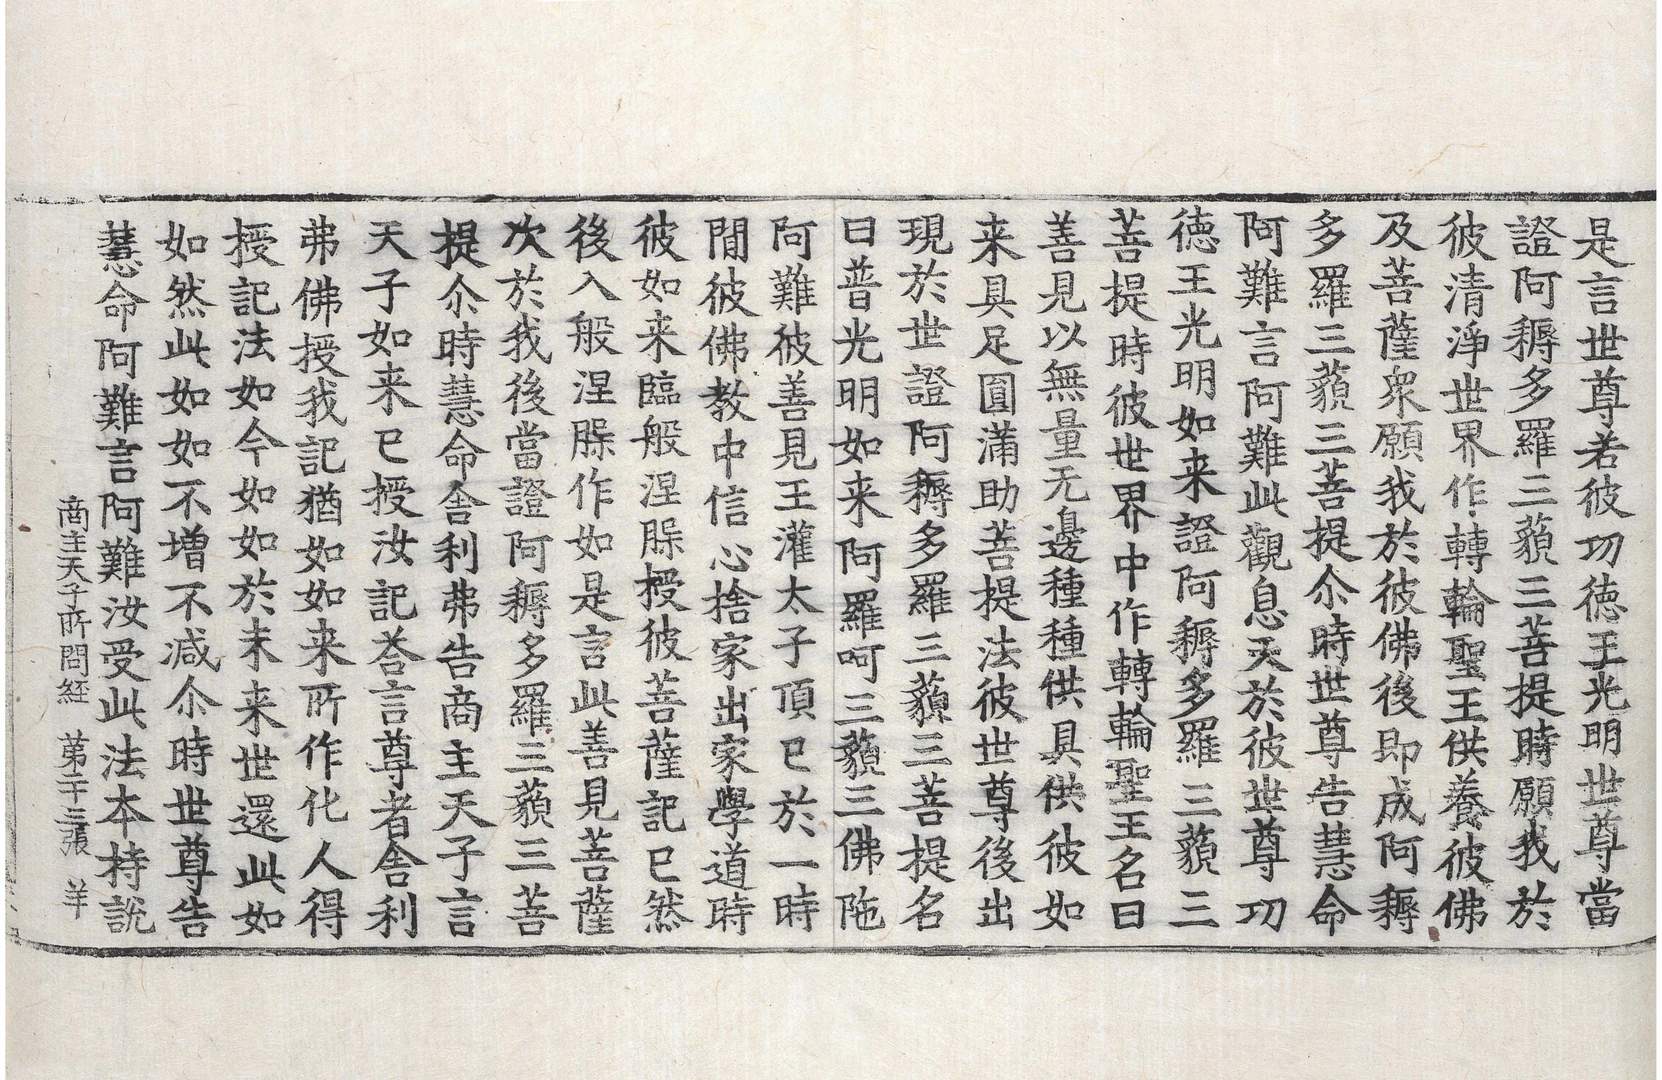 是言世尊若彼功徳王光明世尊當
證阿耨多羅三藐三菩提時願我於
彼清淨世界作轉輪聖王供養彼佛
及菩薩衆願我於彼佛後即成阿耨
多羅三藐三菩提尒時世尊告慧命
阿難言阿難此觀息天於彼世尊功
徳王光明如来證阿耨多羅三藐三
菩提時彼世界中作轉輪聖王名曰
善見以無量无邊種種供具供彼如
来具足圓滿助菩提法彼世尊後出
現於世證阿耨多羅三藐三菩提名
曰普光明如来阿羅呵三藐三佛陁
阿難彼善見王灌太子頂已於一時
閒彼佛教中信心捨家出家學道時
彼如来臨般涅槃授彼菩薩記已然
後入般涅槃作如是言此善見菩薩
次於我後當證阿耨多羅三藐三菩
提尒時慧命舎利弗告商主天子言
天子如来已授汝記荅言尊者舎利
弗佛授我記猶如如来所作化人得
授記法如今如如於未来世還此如
如然此如如不增不减尒時世尊告
慧命阿難言阿難汝受此法本持說
商主天子所問経　第二十三張　羊